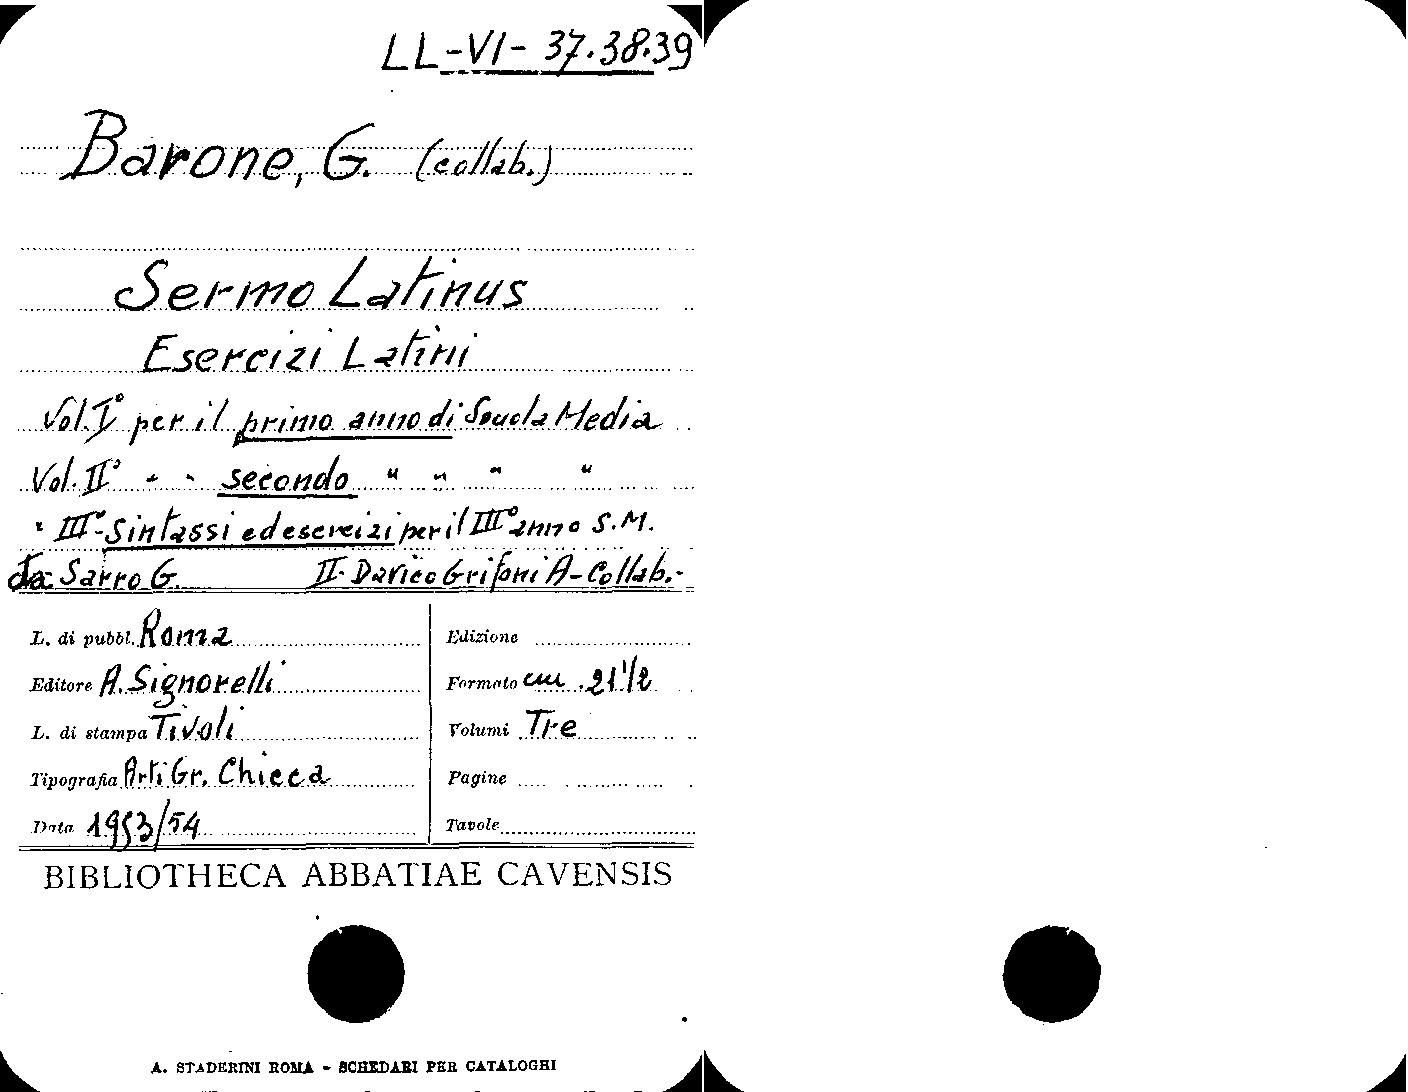 LL-VI-37.38.39
Barone, G. (collab.)
Sermo Latinus
Esercizi Latini
Vol. I° per il primo anno di Scuola Media
Vol. II° " " secondo " " " "
" III°- Sintassi ed esercizi per il III° anno S.M.
da Sarro G. II- Davico Grifoni A-Collab.-
L. di pubbl. Roma
Editore A. Signorelli
L. di stampa Tivoli
Tipografia Arti Gr. Chicca
Data 1953/54
Edizione
Formato cm. 21 1/2
Volumi Tre
Pagine
Tavole
BIBLIOTHECA ABBATIAE CAVENSIS
A. STADERINI ROMA - SCHEDARI PER CATALOGHI